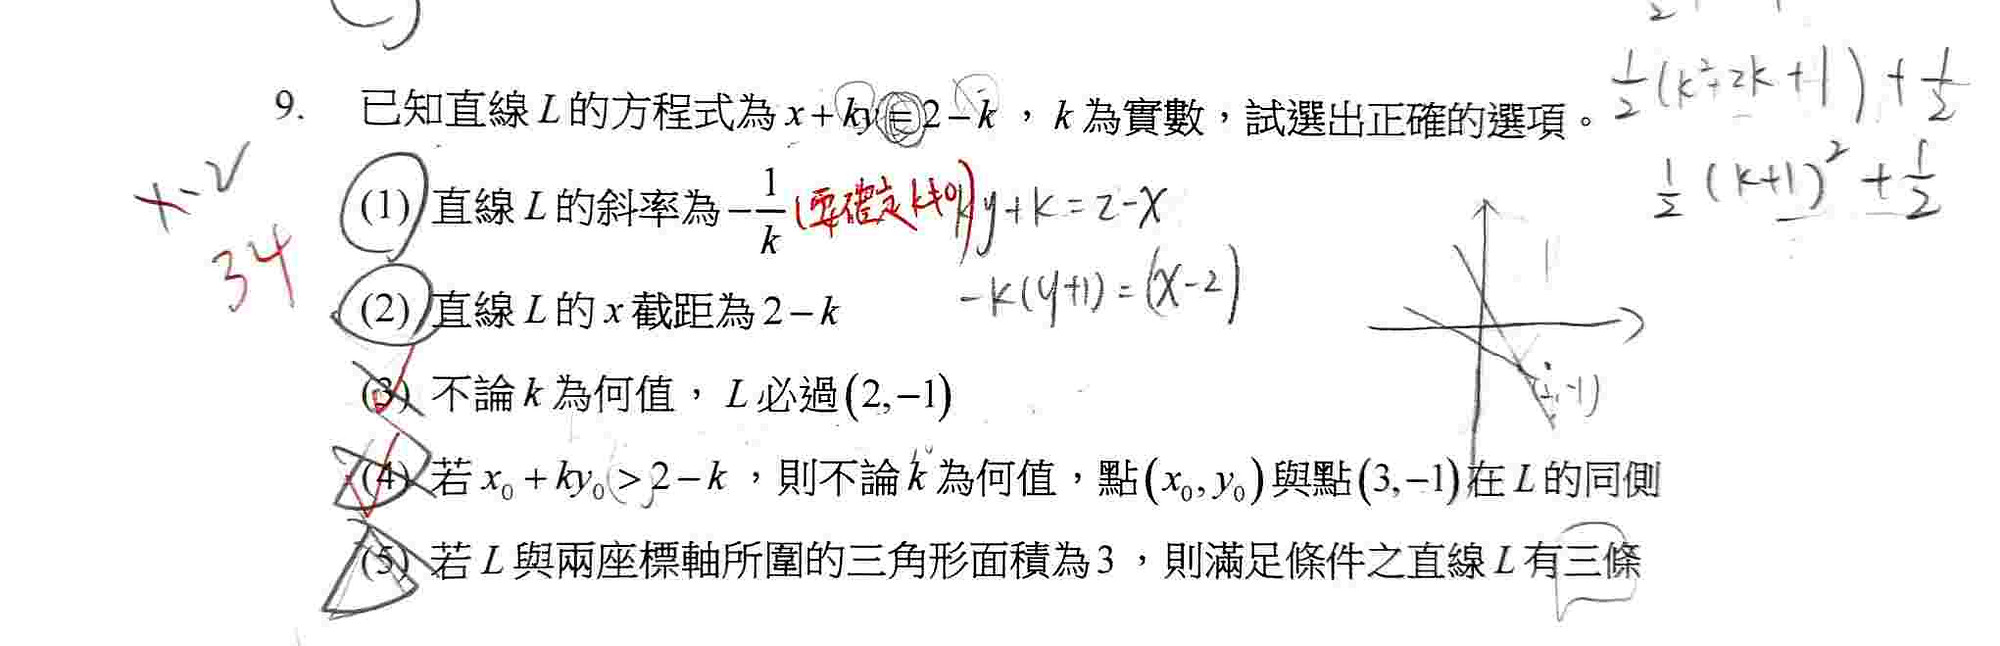 ½(k²+2k+1)+½
9. 已知直線 L 的方程式為 x + ky = 2 − k ， k 為實數，試選出正確的選項。
½(k+1)²+½
(1) 直線 L 的斜率為 −1/k (要確定k≠0) ky+k=2-x
34
(2) 直線 L 的 x 截距為 2 − k -k(y+1)=(x-2)
(3) 不論 k 為何值， L 必過(2,−1)
(4) 若 x₀ + ky₀ > 2 − k ，則不論 k 為何值，點(x₀, y₀)與點(3,−1)在 L 的同側
(5) 若 L 與兩座標軸所圍的三角形面積為3，則滿足條件之直線 L 有三條